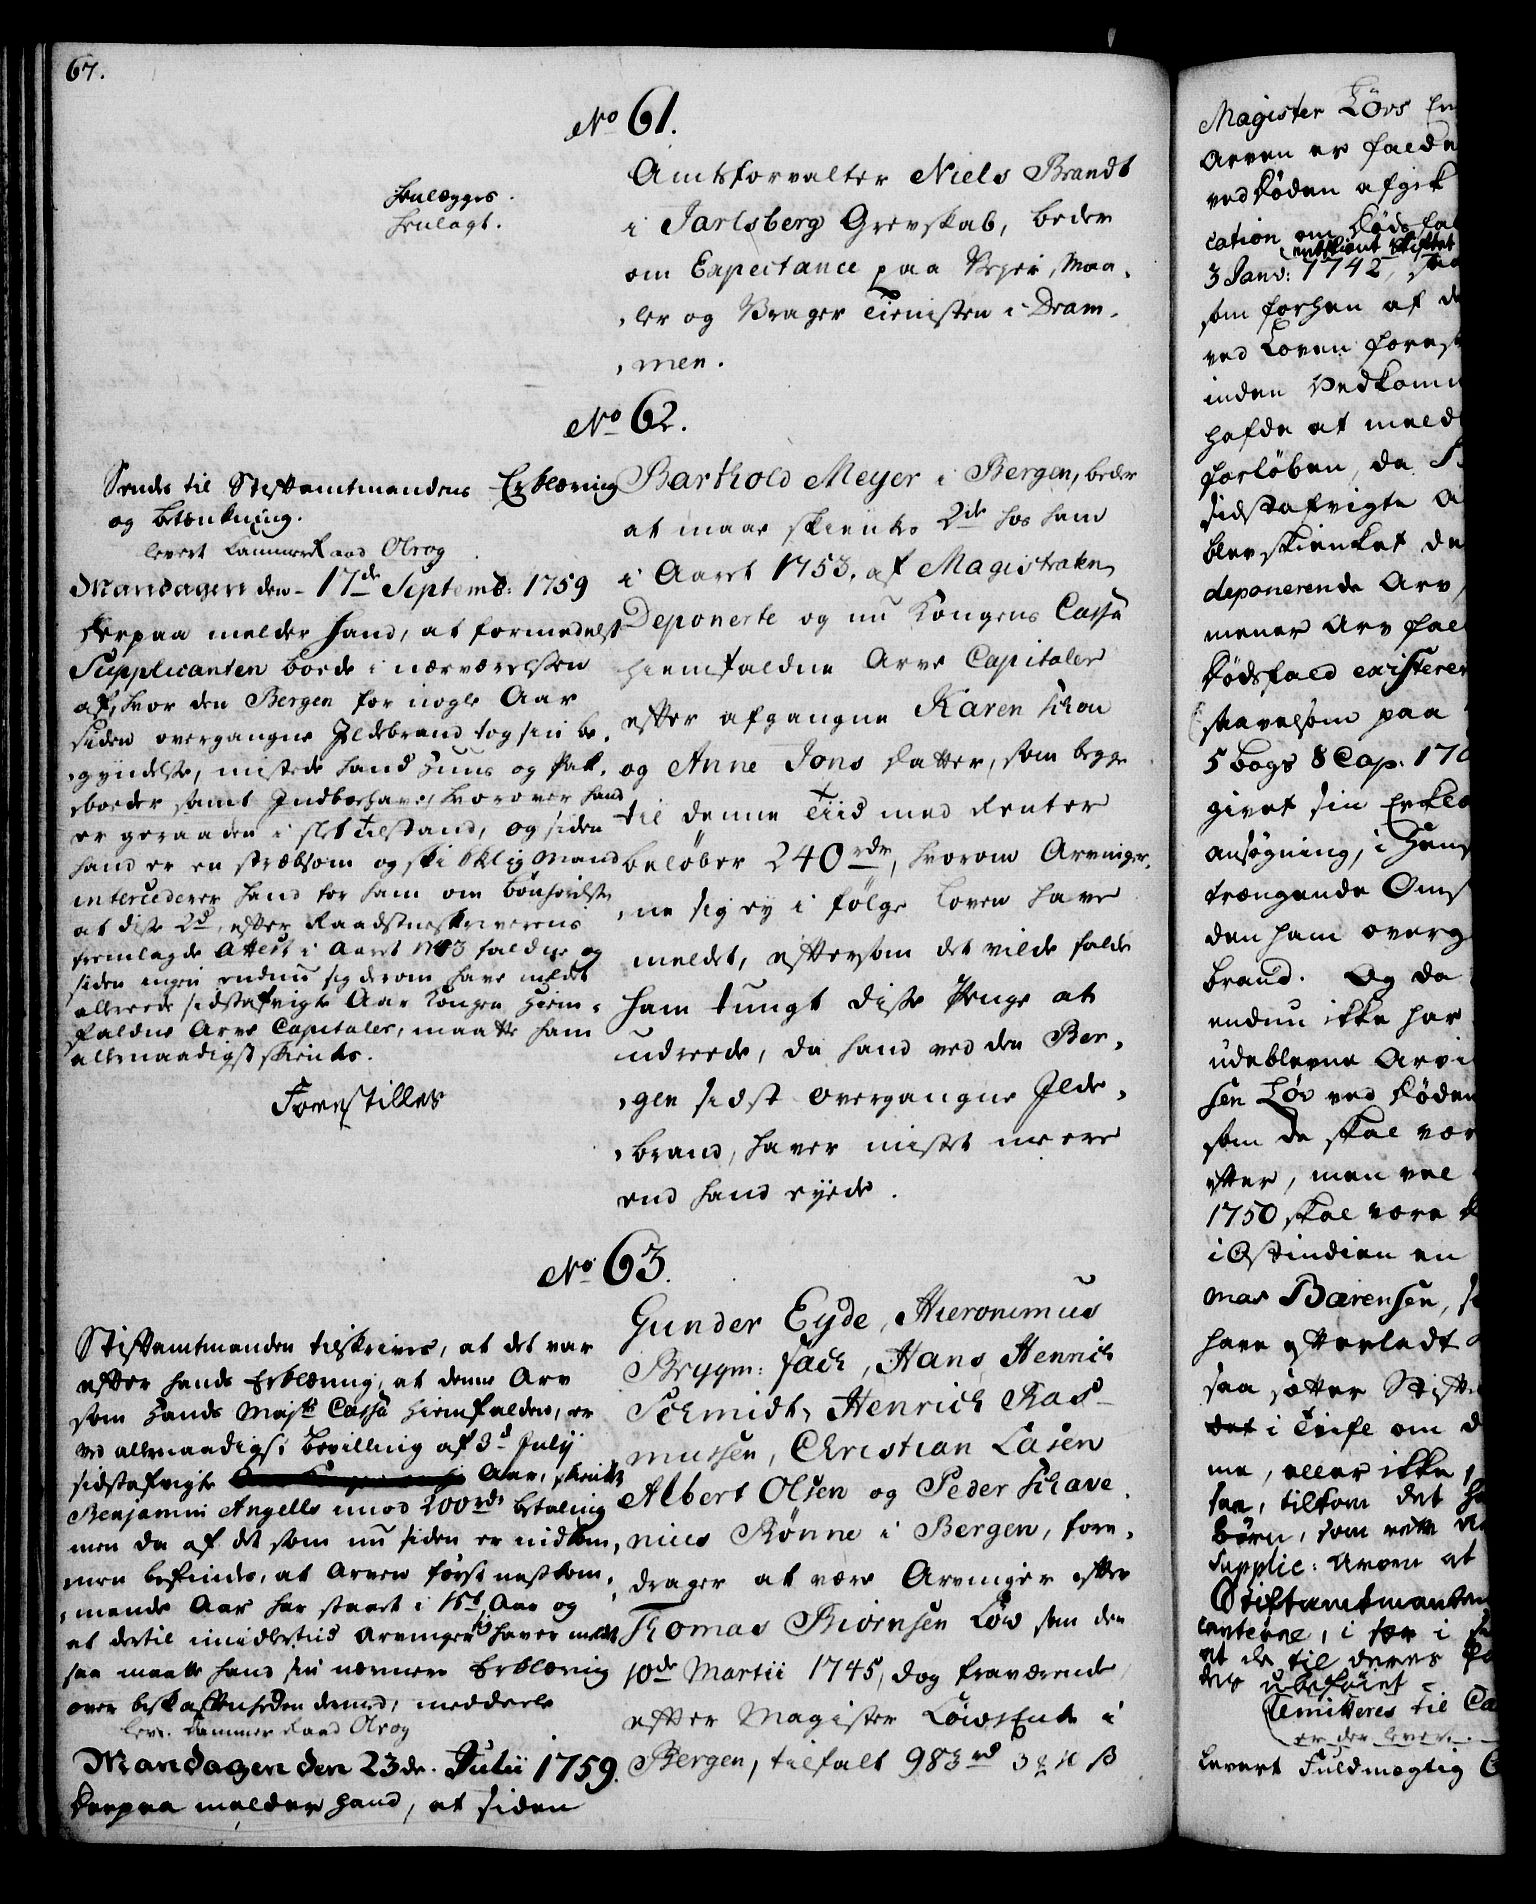 67.
No 61.
Henlægges.
Henlagt.
Amtsforvalter Niels Brandt
i Jarlsberg Grevskab, beder
om Expectance paa Vejer, Maa-
ler og Vrager Tienisten i Dram-
men.
No 62.
Sendes til Stiftamtmandens Erklæring
og betænkning.
levert Cammerraad Olrog
Mandagen den 17de Septemb: 1759
Herpaa melder hand, at formedelst
Supplicanten boede i nærværelsen
af, hvor den Bergen for nogle Aar
siden overgangne Ildebrand tog sin be-
gyndelse, mistede hand Huus og Pak-
boeder samt Indboehave, hvorover hand
er geraaden i slet tilstand, og siden
hand er en stræbsom og skikkelig Mand
intercederer hand for ham om bønhørelse
at disse 2de, efter Raadstueskriverens
fremlagde Attest i Aaret 1743 faldne og
siden ingen endnu sig derom have meldt
allerede sidstafvigte Aar Kongen hiem-
faldne Arve Capitaler, maatte ham
allernaadigst skienkes.
Forestilles
Barthold Meyer i Bergen, beder
at maae skienkes 2de hos ham
i Aaret 1753. af Magistraten
Deponerte og nu Kongens Cassa
hiemfaldne Arve Capitaler
efter afgangne Karen Schou
og Anne Jons Datter, som begge
til denne Tiid med Renter
beløber 240 rdr, hvorom Arvinger-
ne sig ey i følge Loven have
meldet, eftersom det vilde falde
ham tungt disse Penge at
udreede, da hand ved den Ber-
gen sidst overgangne Ilde-
brand, haver mistet meere
end hand eyede.
No 63.
Stiftamtmanden tilskrives, at det var
efter hands Erklæring, at denne Arv
som Hands Mayts Cassa hiemfalden, er
ved allernaadigst Bevilling af 3d July
sidstafvigte Aar, skienkt
Benjamin Angells imod 200 rdr betaling
men da af det som nu siden er indkom-
men befindes, at Arven først nestkom-
mende Aar har staaet i 15d Aar og
at dertil imidlertiid Arvinger sig haver meldt
saa maatte hand sin nærmere Erklæring
over beskaffenheden dermed, meddeele
lev. Cammer Raad Olrog
Mandagen den 23de Julii 1759.
Herpaa melder hand, at siden
Gunder Eyde, Hieronimus
Brygm: Fack, Hans Henrich
Schmidt, Henrich Ras-
mussen, Christian Lasen
Albert Olsen og Peder Schave-
nius Rønne i Bergen, fore-
drager at være Arvinger efter
Thomas Biørnsen Løw som den
10de Martii 1745, dog fraværende
efter Magister Løws Enke i
Bergen, tilfalt 983 rd 3 ß
Magister Løvs
Arven er falde
ved Døden afgik
cation om Dødsfal
3 Janv: 1742,
som forhen af
ved Loven forest
inden Vedkomm
hafde at meld
forløben, da
sidstafvigte
blev skienket de
deponerende Arv
mener Arv fal
Dødsfald existerer
saavelsom paa
5 Bogs 8 Cap. 170
givet sin Erklæ
ansøgning, i Hens
trængende Oms
den ham overg
brand. Og da
endnu ikke har
udeblevne Arvi
sen Løv ved Døden
som da skal vær
efter, men vel
1750 skal være
i Ostindien en
mas Bærensen,
have efterladt
saa sætter Stift
i Tvifl om d
me, eller ikke
saa, tilkom det
børn, som
Supplic: Arven at
Stiftamtmanden
i
at de til deres
des ubeføiet
Remitteres til Ca
er der lever
Levert Fuldmægtig